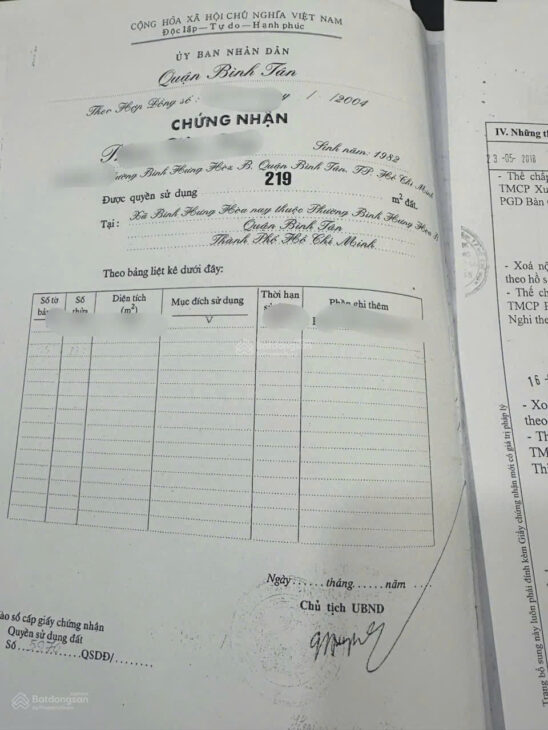 CỘNG HÒA XÃ HỘI CHỦ NGHĨA VIỆT NAM
Độc lập - Tự do - Hạnh phúc
ỦY BAN NHÂN DÂN
Quận Bình Tân
Theo Hợp Đồng số : / /2004
CHỨNG NHẬN
Sinh năm: 1982
Bình Hưng Hòa B, Quận Bình Tân, TP Hồ Chí Minh
219
Được quyền sử dụng m² đất.
Tại : Xã Bình Hưng Hòa nay thuộc Phường Bình Hưng Hòa B
Quận Bình Tân
Thành Phố Hồ Chí Minh.
Theo bảng liệt kê dưới đây:
Số tờ Số Diện tích (m²) Mục đích sử dụng Thời hạn Phần ghi thêm
V
Ngày......tháng......năm ......
Chủ tịch UBND
số cấp giấy chứng nhận
Quyền sử dụng đất
Số QSDĐ/
Batdongsan
IV. Những th
23 -05- 2018
- Thế chấ
TMCP Xu
PGD Bàn
- Xoá nộ
theo hồ s
- Thế ch
TMCP
Nghi the
16
- Xo
theo
- Th
TM
Th
Trang bổ sung này luôn phải đính kèm Giấy chứng nhận mới có giá trị pháp lý